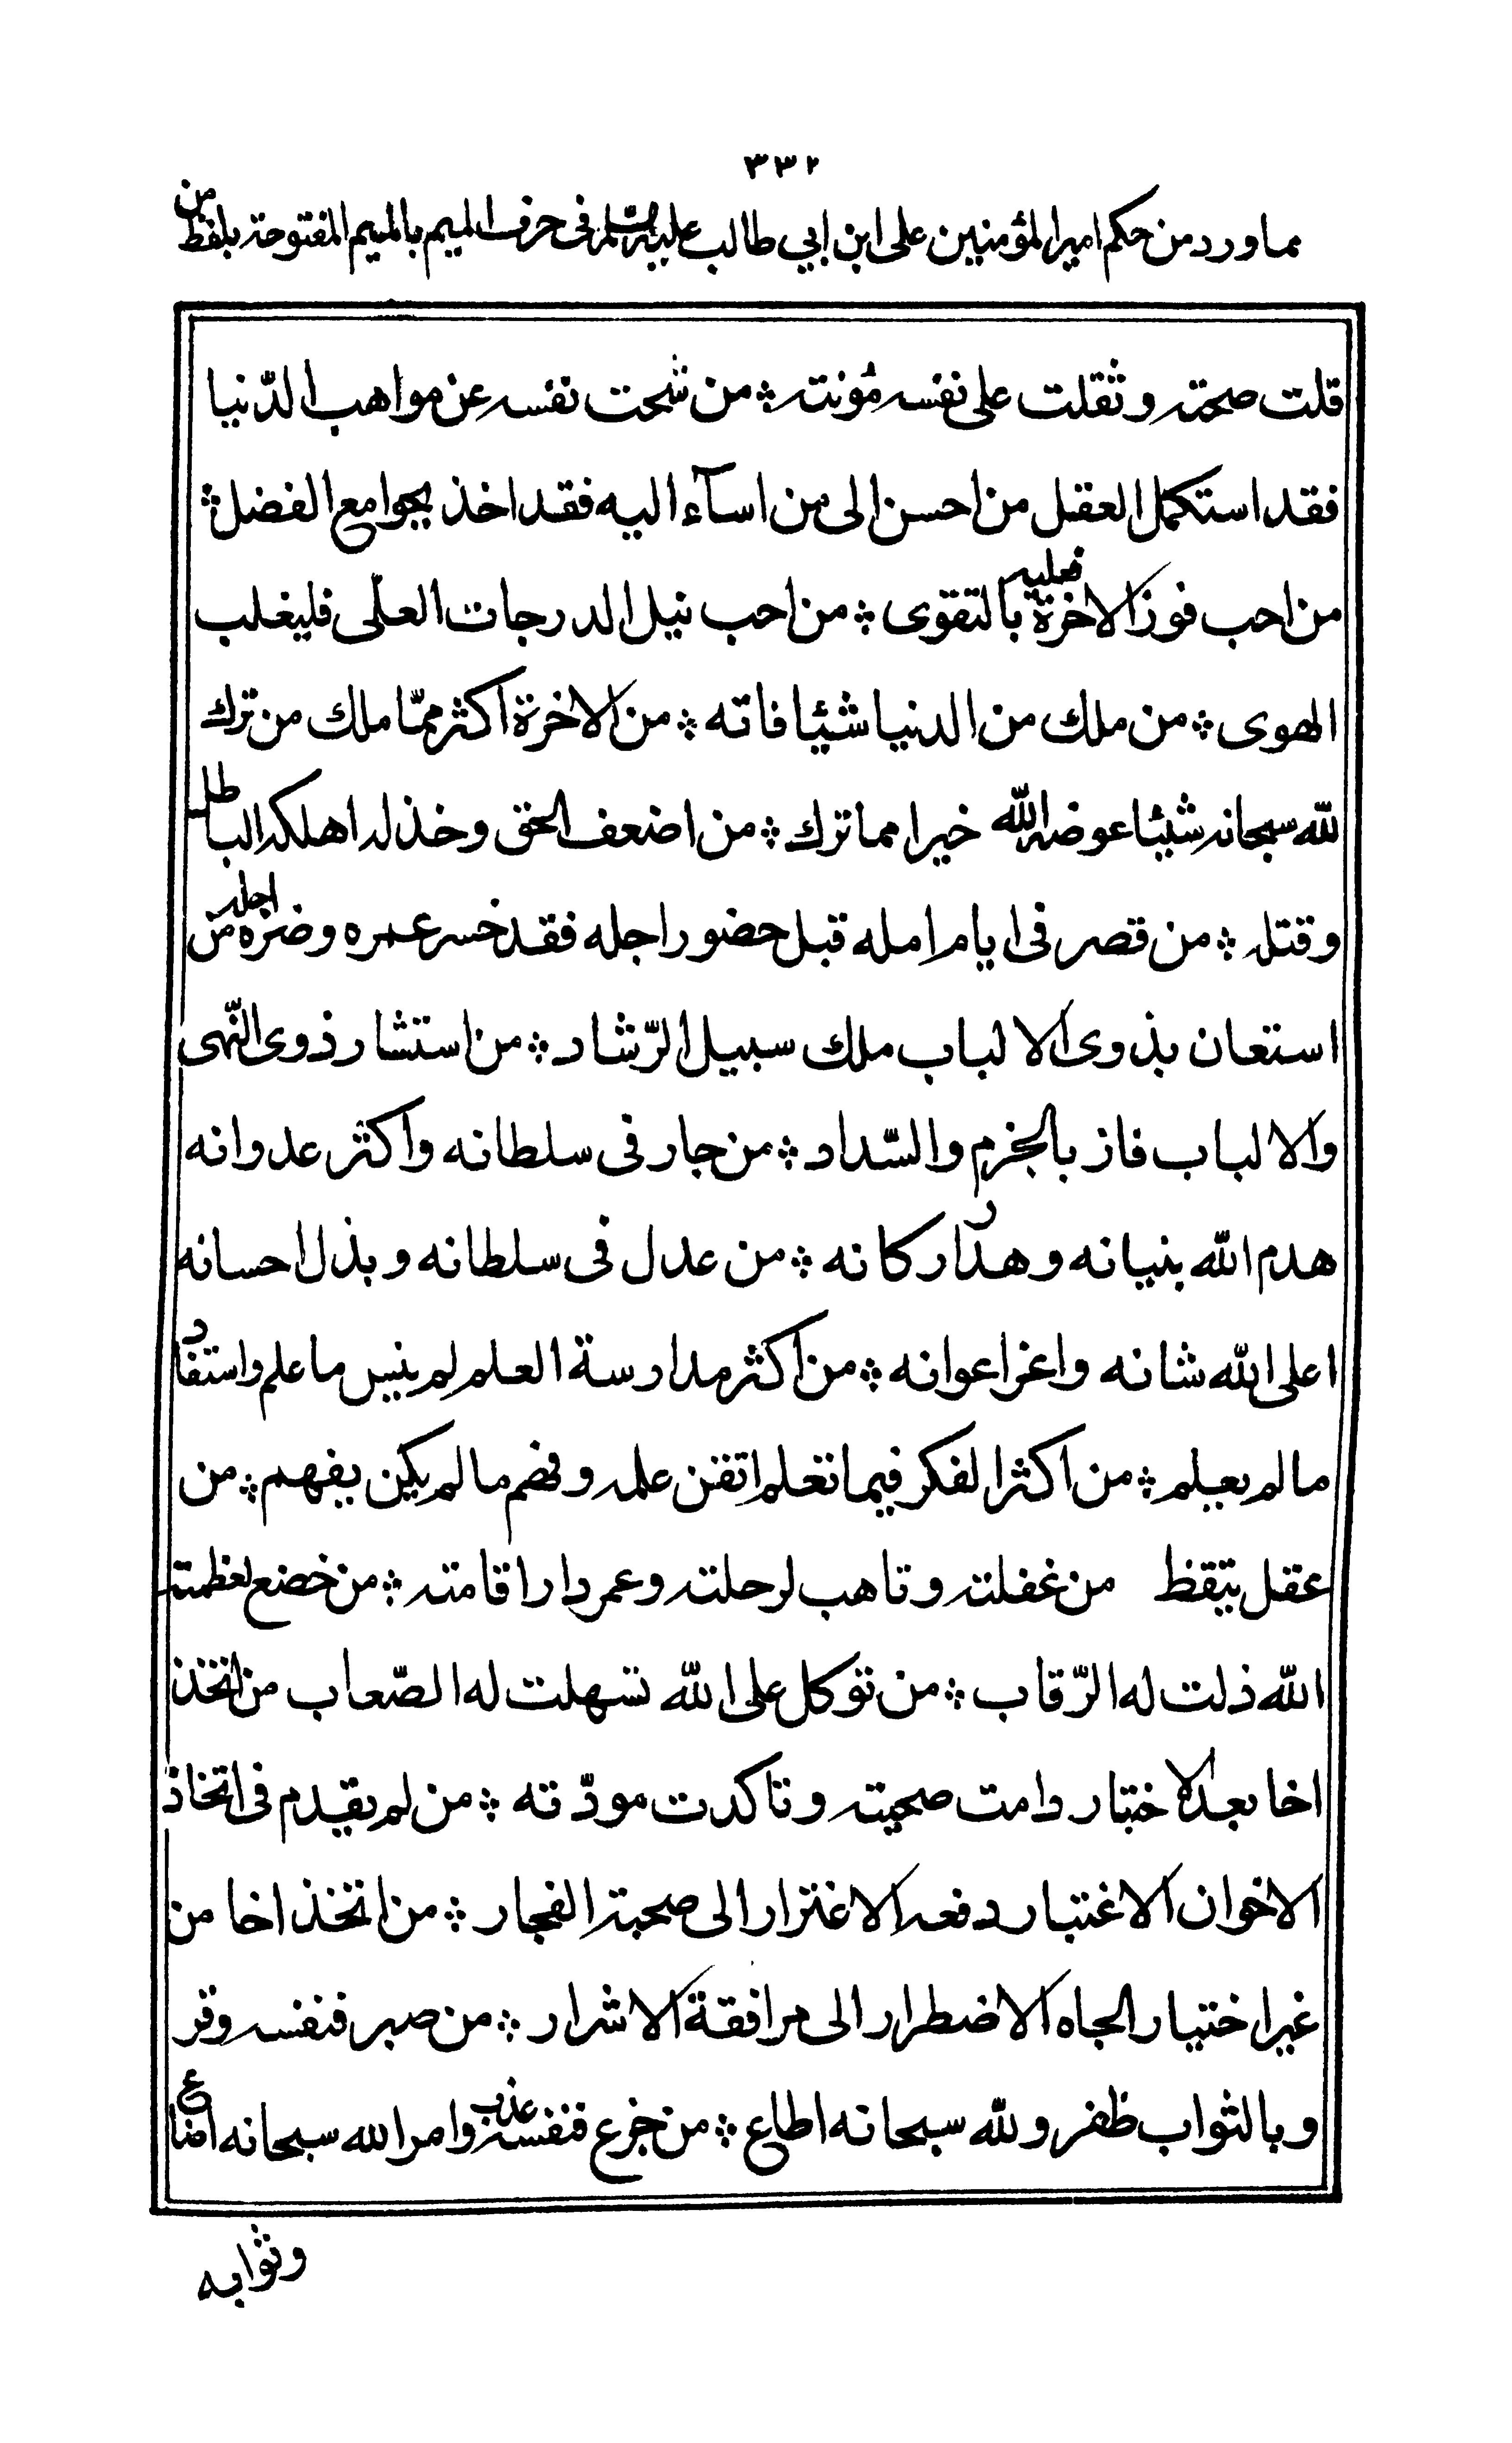 ٣٣٢
مما ورد من حكم امير المؤمنين على ابن ابي طالب عليه السلم فى حرف الميم بالميم المفتوحة بلفظ من
قلت صحته وثقلت على نفسه مُونته ؞ من شحت نفسه عن مواهب الدّنيا
فقد استكمل العقل من احسن الى من اسآء اليه فقد اخذ بجوامع الفضل ؞
من احب فوز الاخرة فعليه بالتقوى ؞ من احب نيل الدرجات العلّى فليغلب
الهوى ؞ من ملك من الدنيا شيئا فاته ؞ من الاخرة اكثر ممّا ملك من ترك
لله سبحانه شيئا عوضه الله خيرا مما ترك ؞ من اضعف الحق وخذله اهلكه الباطل
وقتله ؞ من قصر فى ايام امله قبل حضور اجله فقد خسر عمره وضره اجله من
استعان بذوى الالباب ملك سبيل الرّشاد ؞ من استشار ذوى النّهى
والالباب فاز بالخرم والسّداد ؞ من جار فى سلطانه واكثر عدوانه
هدم الله بنيانه وهدّ اركانه ؞ من عدل فى سلطانه وبذل احسانه
اعلى الله شانه واغر اعوانه ؞ من اكثر مدارسة العلم لم ينس ما علم واستفاد
ما لم يعلم ؞ من اكثر الفكر فيما تعلم اتقن علمه وفهم ما لم يكن يفهم ؞ من
عقل تيقظ من غفلته وتاهب لرحلته وعمر دار اقامته ؞ من خضع لعظمة
الله ذلت له الرّقاب ؞ من توكل على الله تسهلت له الصّعاب من اتخذ
اخا بعد الاختبار دامت صحبته وتاكدت مودّته ؞ من لم يقدم فى اتخاذ
الاخوان الاغتبار دفعه الاغترار الى صحبة الفجار ؞ من اتخذ اخا من
غير اختيار الجاه الاضطرار الى مرافقة الاشرار ؞ من صبر فنفسه وقر
وبالثواب ظفر ولله سبحانه اطاع ؞ من جزع فنفسه عذب وامر الله سبحانه اضاع
وثوابه